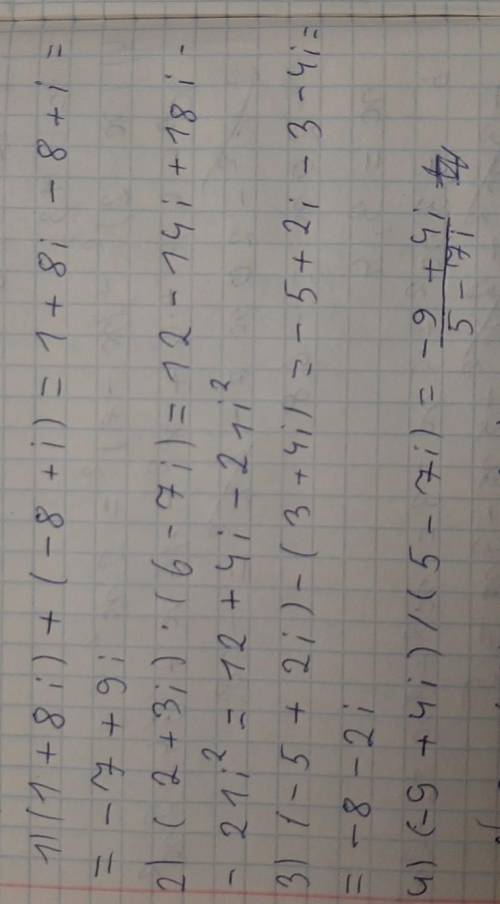 1) (1 + 8i) + (-8 + i) = 1 + 8i - 8 + i =
= -7 + 9i
2) (2 + 3i) · (6 - 7i) = 12 - 14i + 18i -
- 21i² = 12 + 4i - 21i²
3) (-5 + 2i) - (3 + 4i) = -5 + 2i - 3 - 4i =
= -8 - 2i
4) (-9 + 4i) / (5 - 7i) = -9 + 4i
5 - 7i